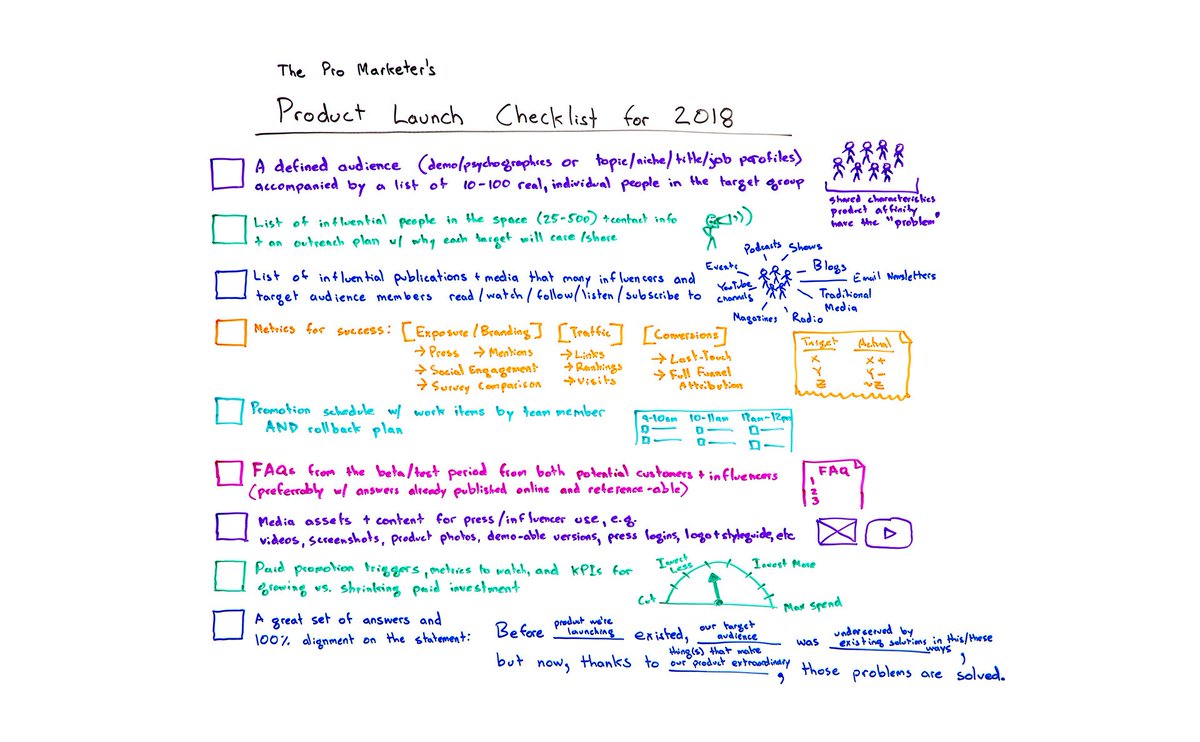 The Pro Marketer's
Product Launch Checklist for 2018
A defined audience (demo/psychographics or topic/niche/title/job profiles)
accompanied by a list of 10-100 real, individual people in the target group
shared characteristics
product affinity
have the "problem"
List of influential people in the space (25-500) + contact info
+ an outreach plan w/ why each target will care/share
List of influential publications + media that many influencers and
target audience members read/watch/follow/listen/subscribe to
Podcasts
Shows
Events
Blogs
Email Newsletters
YouTube
channels
Traditional
Media
Magazines
Radio
Metrics for success: [Exposure/Branding] [Traffic] [Conversions]
→ Press → Mentions
→ Social Engagement
→ Survey Comparison
→ Links
→ Rankings
→ Visits
→ Last-Touch
→ Full Funnel
Attribution
Target Actual
X X+
Y Y-
Z ~Z
Promotion schedule w/ work items by team member
AND rollback plan
9-10am 10-11am 11am-12pm
FAQs from the beta/test period from both potential customers + influencers
(preferrably w/ answers already published online and reference-able)
FAQ
1
2
3
Media assets + content for press/influencer use, e.g.
videos, screenshots, product photos, demo-able versions, press logins, logo+styleguide, etc
Paid promotion triggers, metrics to watch, and KPIs for
growing vs. shrinking paid investment
Cut
Invest
Less
Invest More
Max Spend
A great set of answers and
100% alignment on the statement:
Before product we're launching existed, our target audience was underserved by existing solutions in this/these ways,
but now, thanks to thing(s) that make our product extraordinary, those problems are solved.